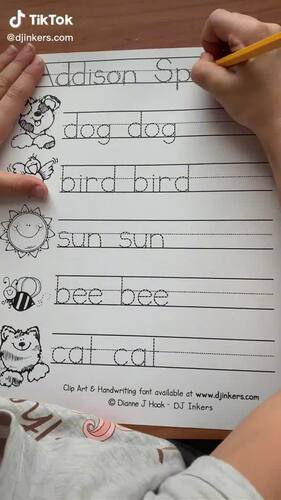 TikTok
@djinkers.com
Addison Sp
dog dog
bird bird
sun sun
bee bee
cat cat
Clip Art & Handwriting font available at www.djinkers.com
© Dianne J Hook - DJ Inkers